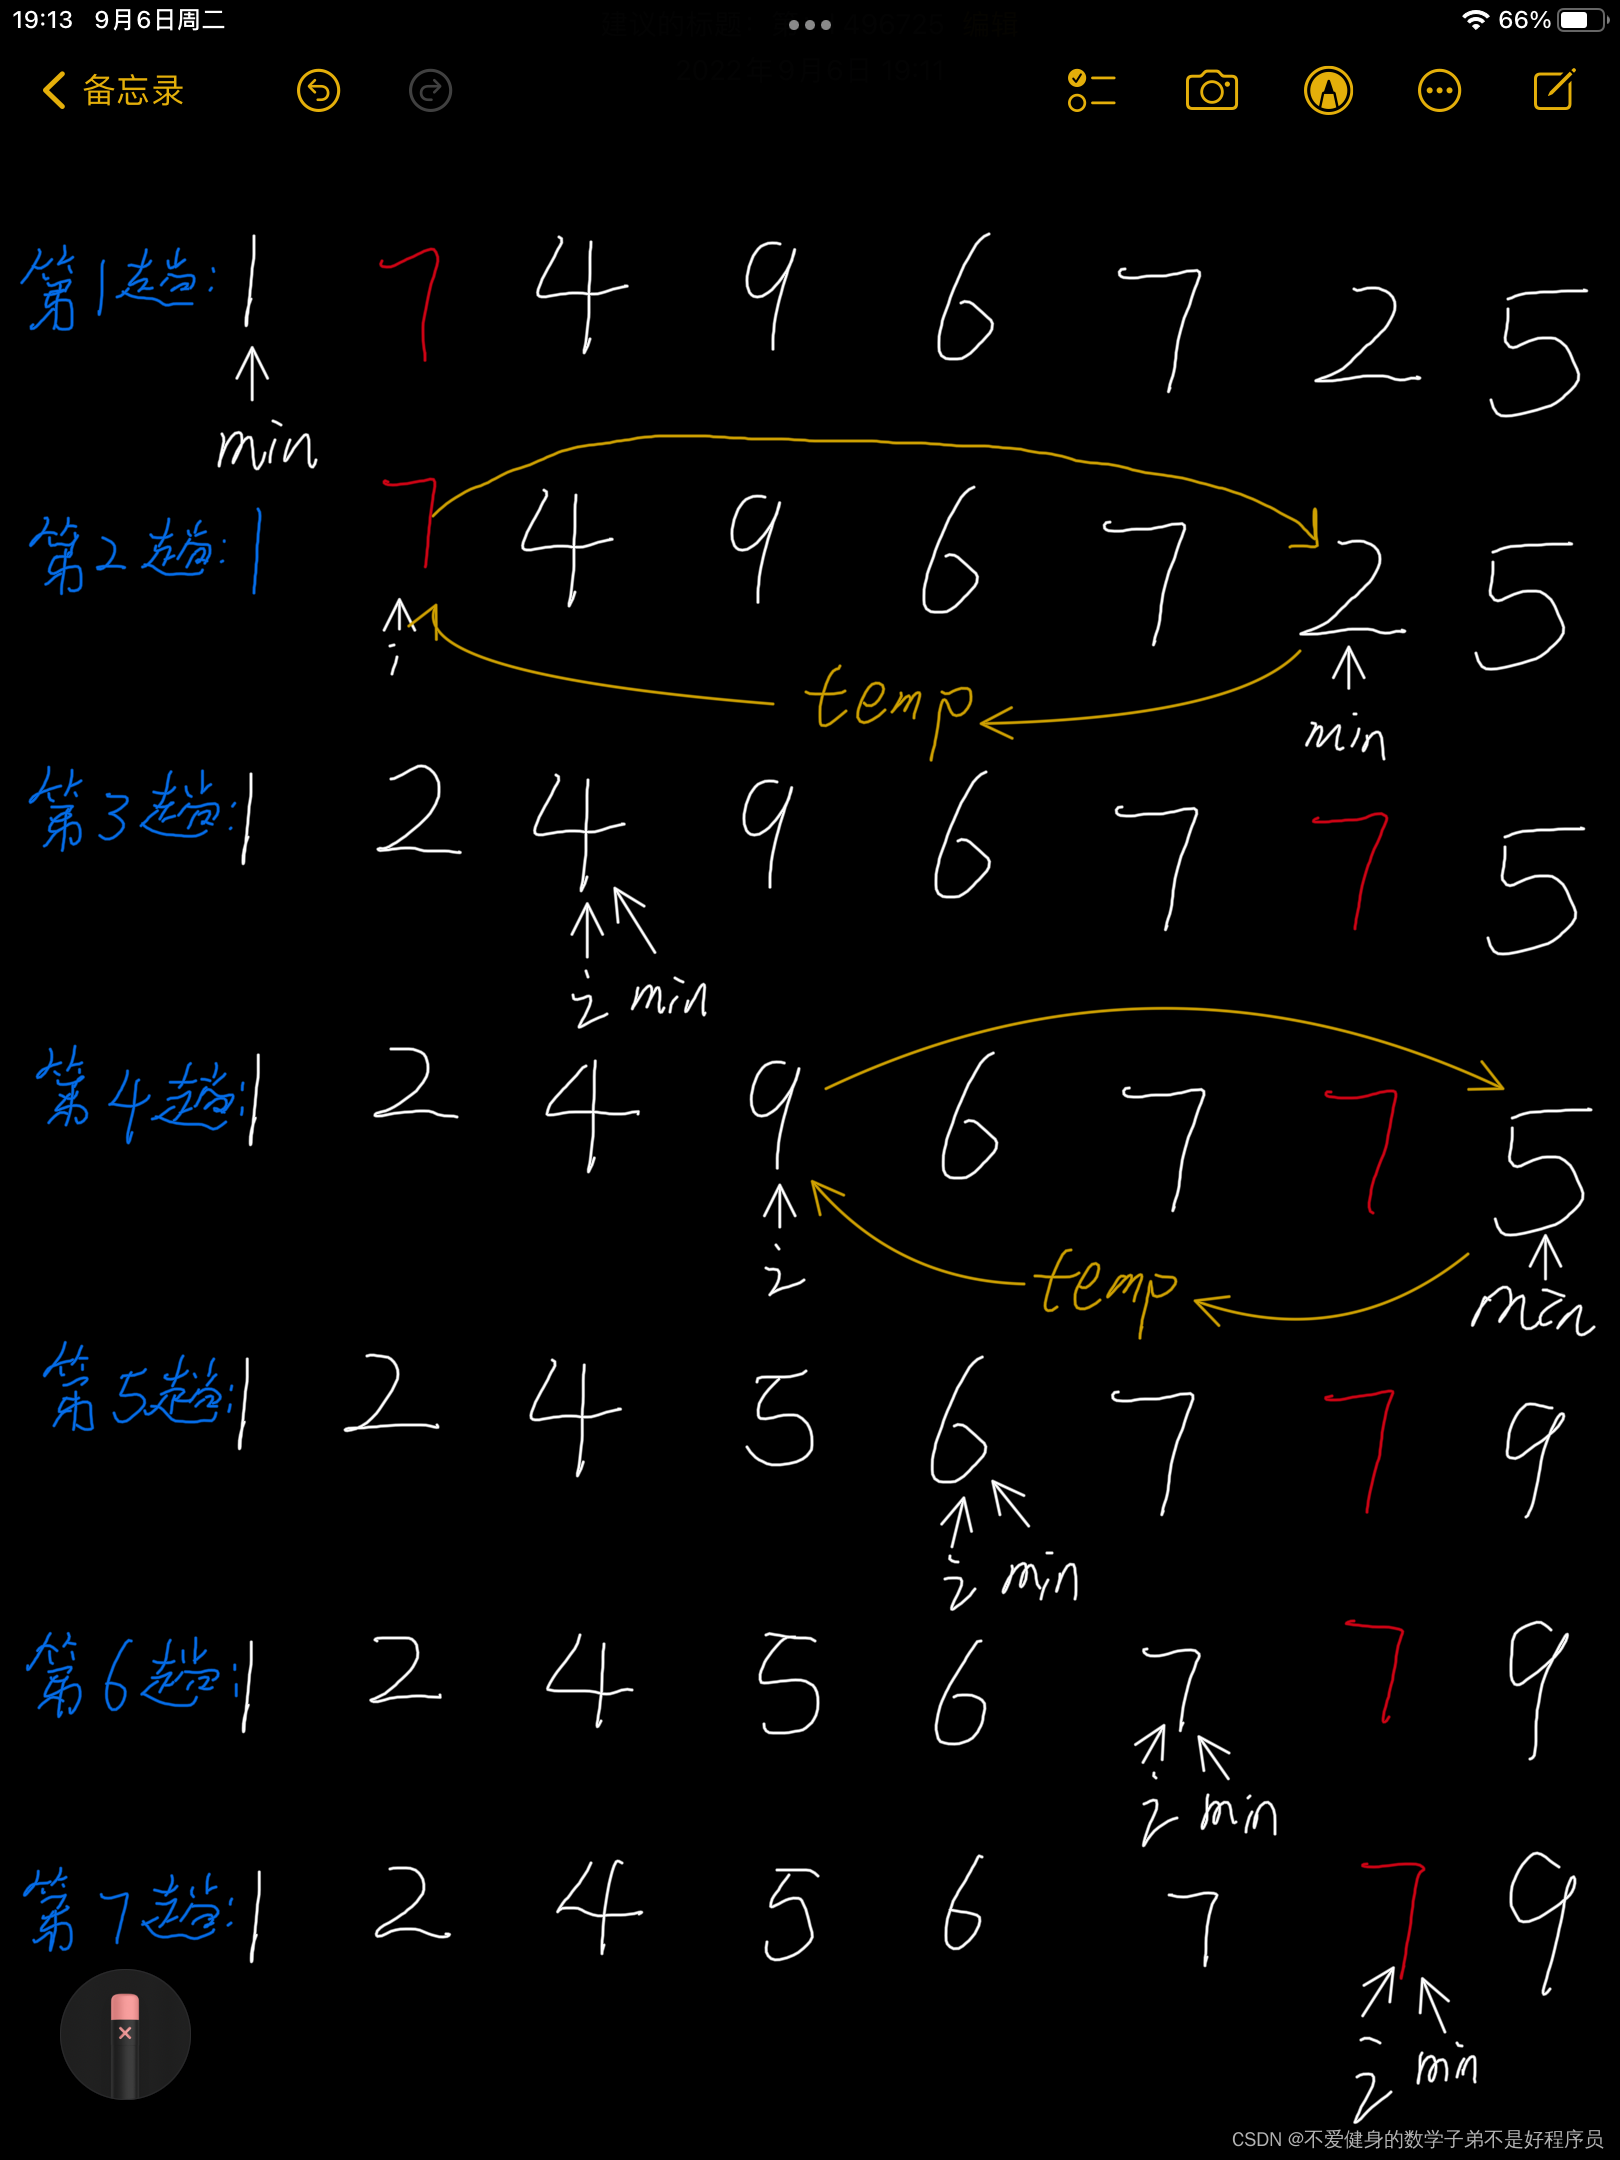 19:13 9月6日周二 66%
备忘录
第1趟: 1 7 4 9 6 7 2 5
min
第2趟: 1 7 4 9 6 7 2 5
i
temp
min
第3趟: 1 2 4 9 6 7 7 5
i min
第4趟: 1 2 4 9 6 7 7 5
i temp min
第5趟: 1 2 4 5 6 7 7 9
i min
第6趟: 1 2 4 5 6 7 7 9
i min
第7趟: 1 2 4 5 6 7 7 9
i min
CSDN @不爱健身的数学子弟不是好程序员